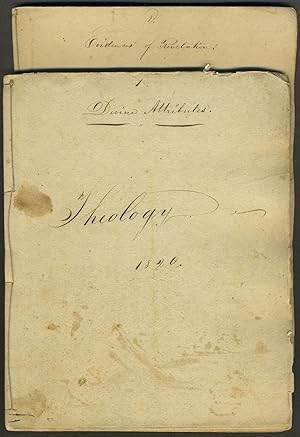 2.
Evidences of Revelation.
1.
Divine Attributes.
Theology
1820.